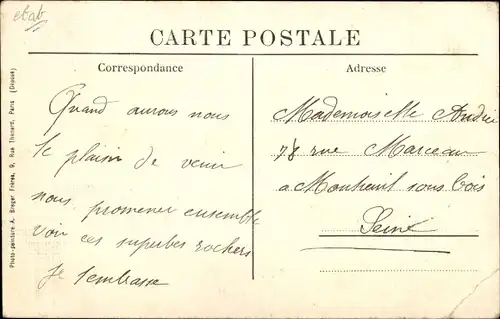 etab
CARTE POSTALE
Correspondance
Adresse
Quand aurons nous
le plaisir de venir
nous promener ensemble
voir ces superbes rochers
Je t'embrasse
Mademoiselle Andrée
78 rue Marceau
a Montreuil sous bois
Seine
Photo-peinture A. Breger Frères, 9, Rue Thénard, Paris (Déposé)